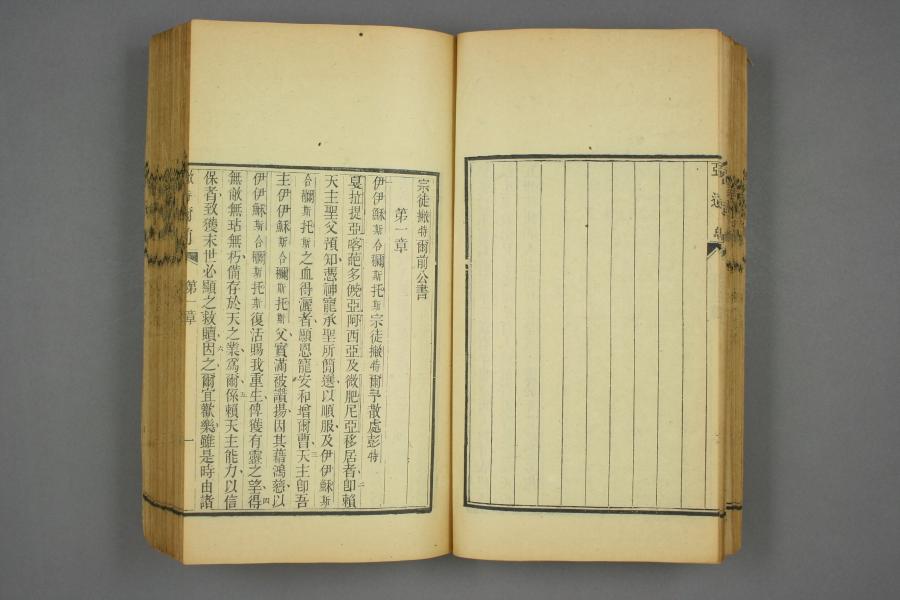 亞適
宗徒撇特爾前公書
第一章
伊伊穌斯合爾斯托斯宗徒撇特爾予散處彭特
戛拉提亞喀葩多㑆亞阿西亞及微肥尼亞移居者、二卽賴
天主聖父預知憑神寵承聖所簡選以順服及伊伊穌斯
合爾斯托斯之血得灑者願恩寵安和增爾曹、三天主卽吾
主伊伊穌斯合爾斯托斯父實滿被讚揚、因其藉鴻慈以
伊伊穌斯合爾斯托斯復活賜我重生俾獲有靈之望、四得
無敝無玷無朽備存於天之業、爲爾、五係賴天主能力、以信
保者、致獲末世必顯之救贖、六因之爾宜歡樂、雖是時由諸
爾前
第一章
一